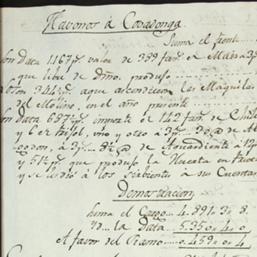 Havonos à Covadonga
Suma el frente
on Data 1167ps. valor de 389 fans. de Mais a 3ps.
que libre de Dmo. produjo
on 344ps. a que ascendieron las Maquilas
del Molino, en el año presente
on Data 687ps. importe de 142 fans. de Chile
y 6 er frijol, uno y otro à 3ps. 30@ de Al
godon, à 3ps. 8@ de Aguardiente à
y 51ps. que produjo la Huerta en
y se le dio à los sirvientes à su Cuenta
Demostracion
Suma el Cargo 4.891. 3. 8.
Yd... la Data 5.350. 4. 0.
A favor del Ramo 0.459. 0. 4